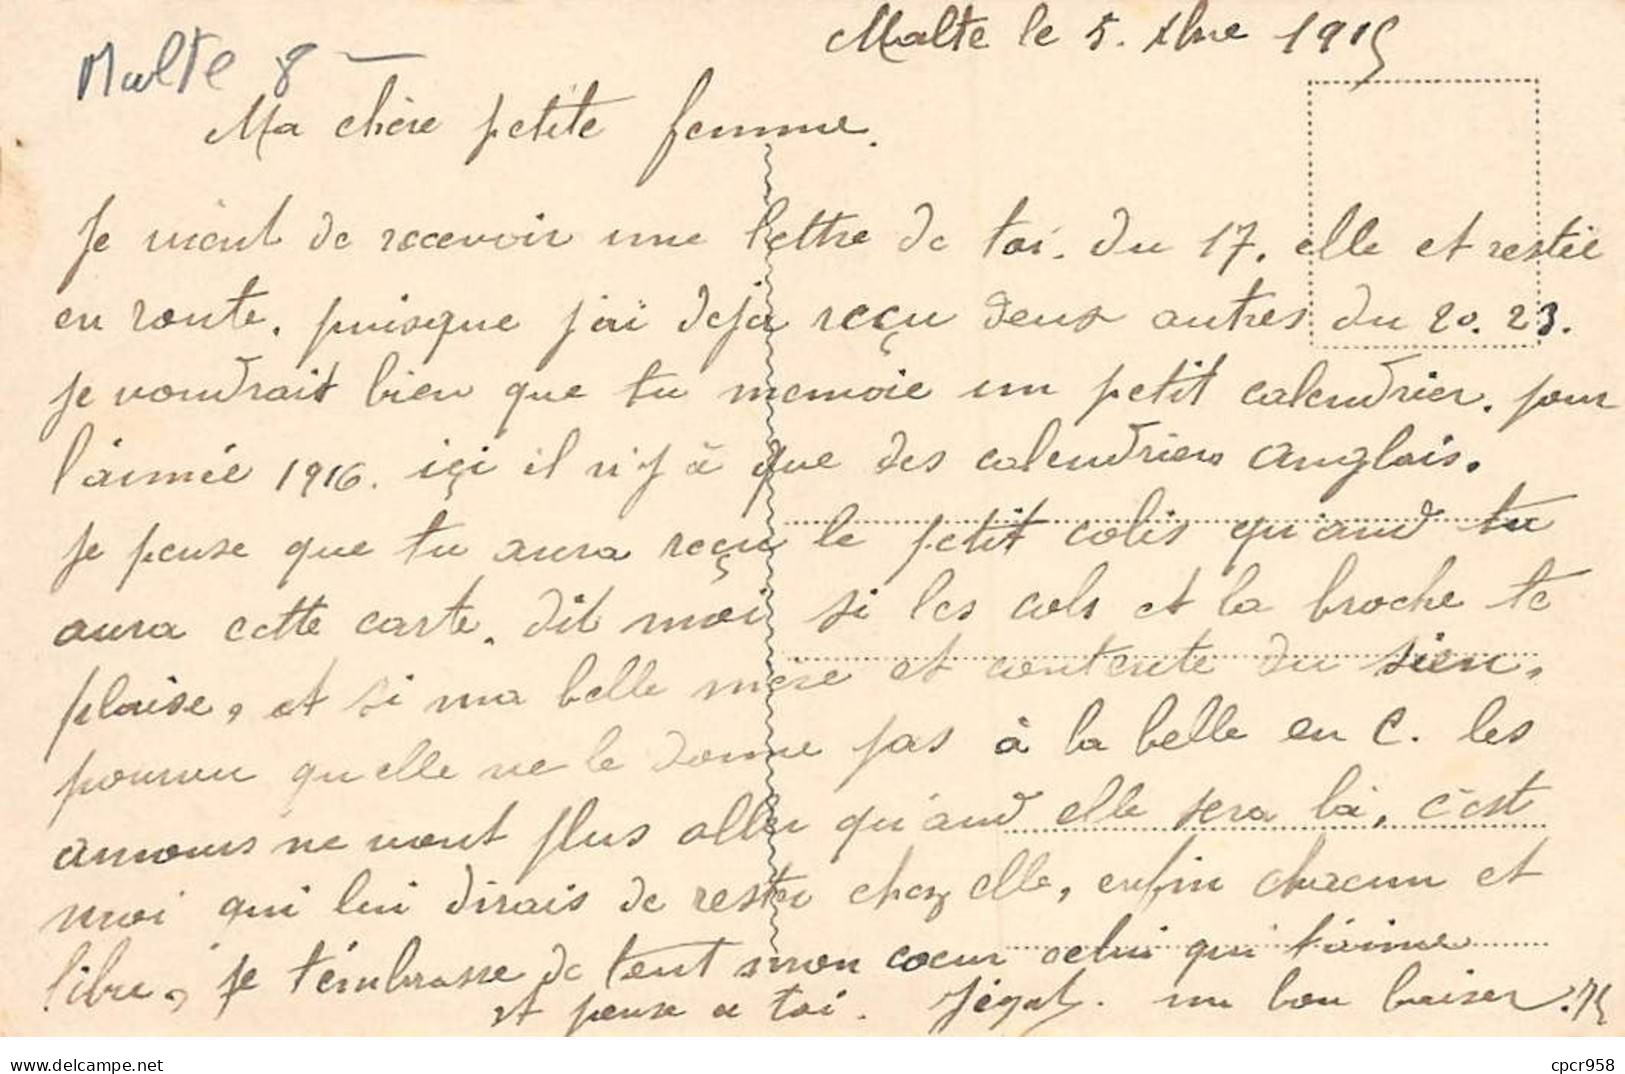 Malte 8 —
Malte le 5. Xbre 1915
Ma chère petite femme.
Je vient de recevoir une lettre de toi. du 17. elle et restée
en route. puisque j'ai deja reçu deux autres du 20. 23.
je voudrait bien que tu m'envoie un petit calendrier. pour
l'année 1916. içi il n'y à que des calendriers anglais.
je pense que tu aura reçu le petit colis qu'and tu
aura cette carte. dit moi si les cols et la broche te
plaise, et si ma belle mère et contente du sien.
pourvu qu'elle ne le donne pas à la belle en C. les
amours ne vont plus aller qu'and elle sera là, c'est
moi qui lui dirais de rester chez elle, enfin chacun et
libre, je t'émbrasse de tout mon cœur celui qui t'aime
et pense a toi. un bon baiser.
delcampe.net
cpcr958